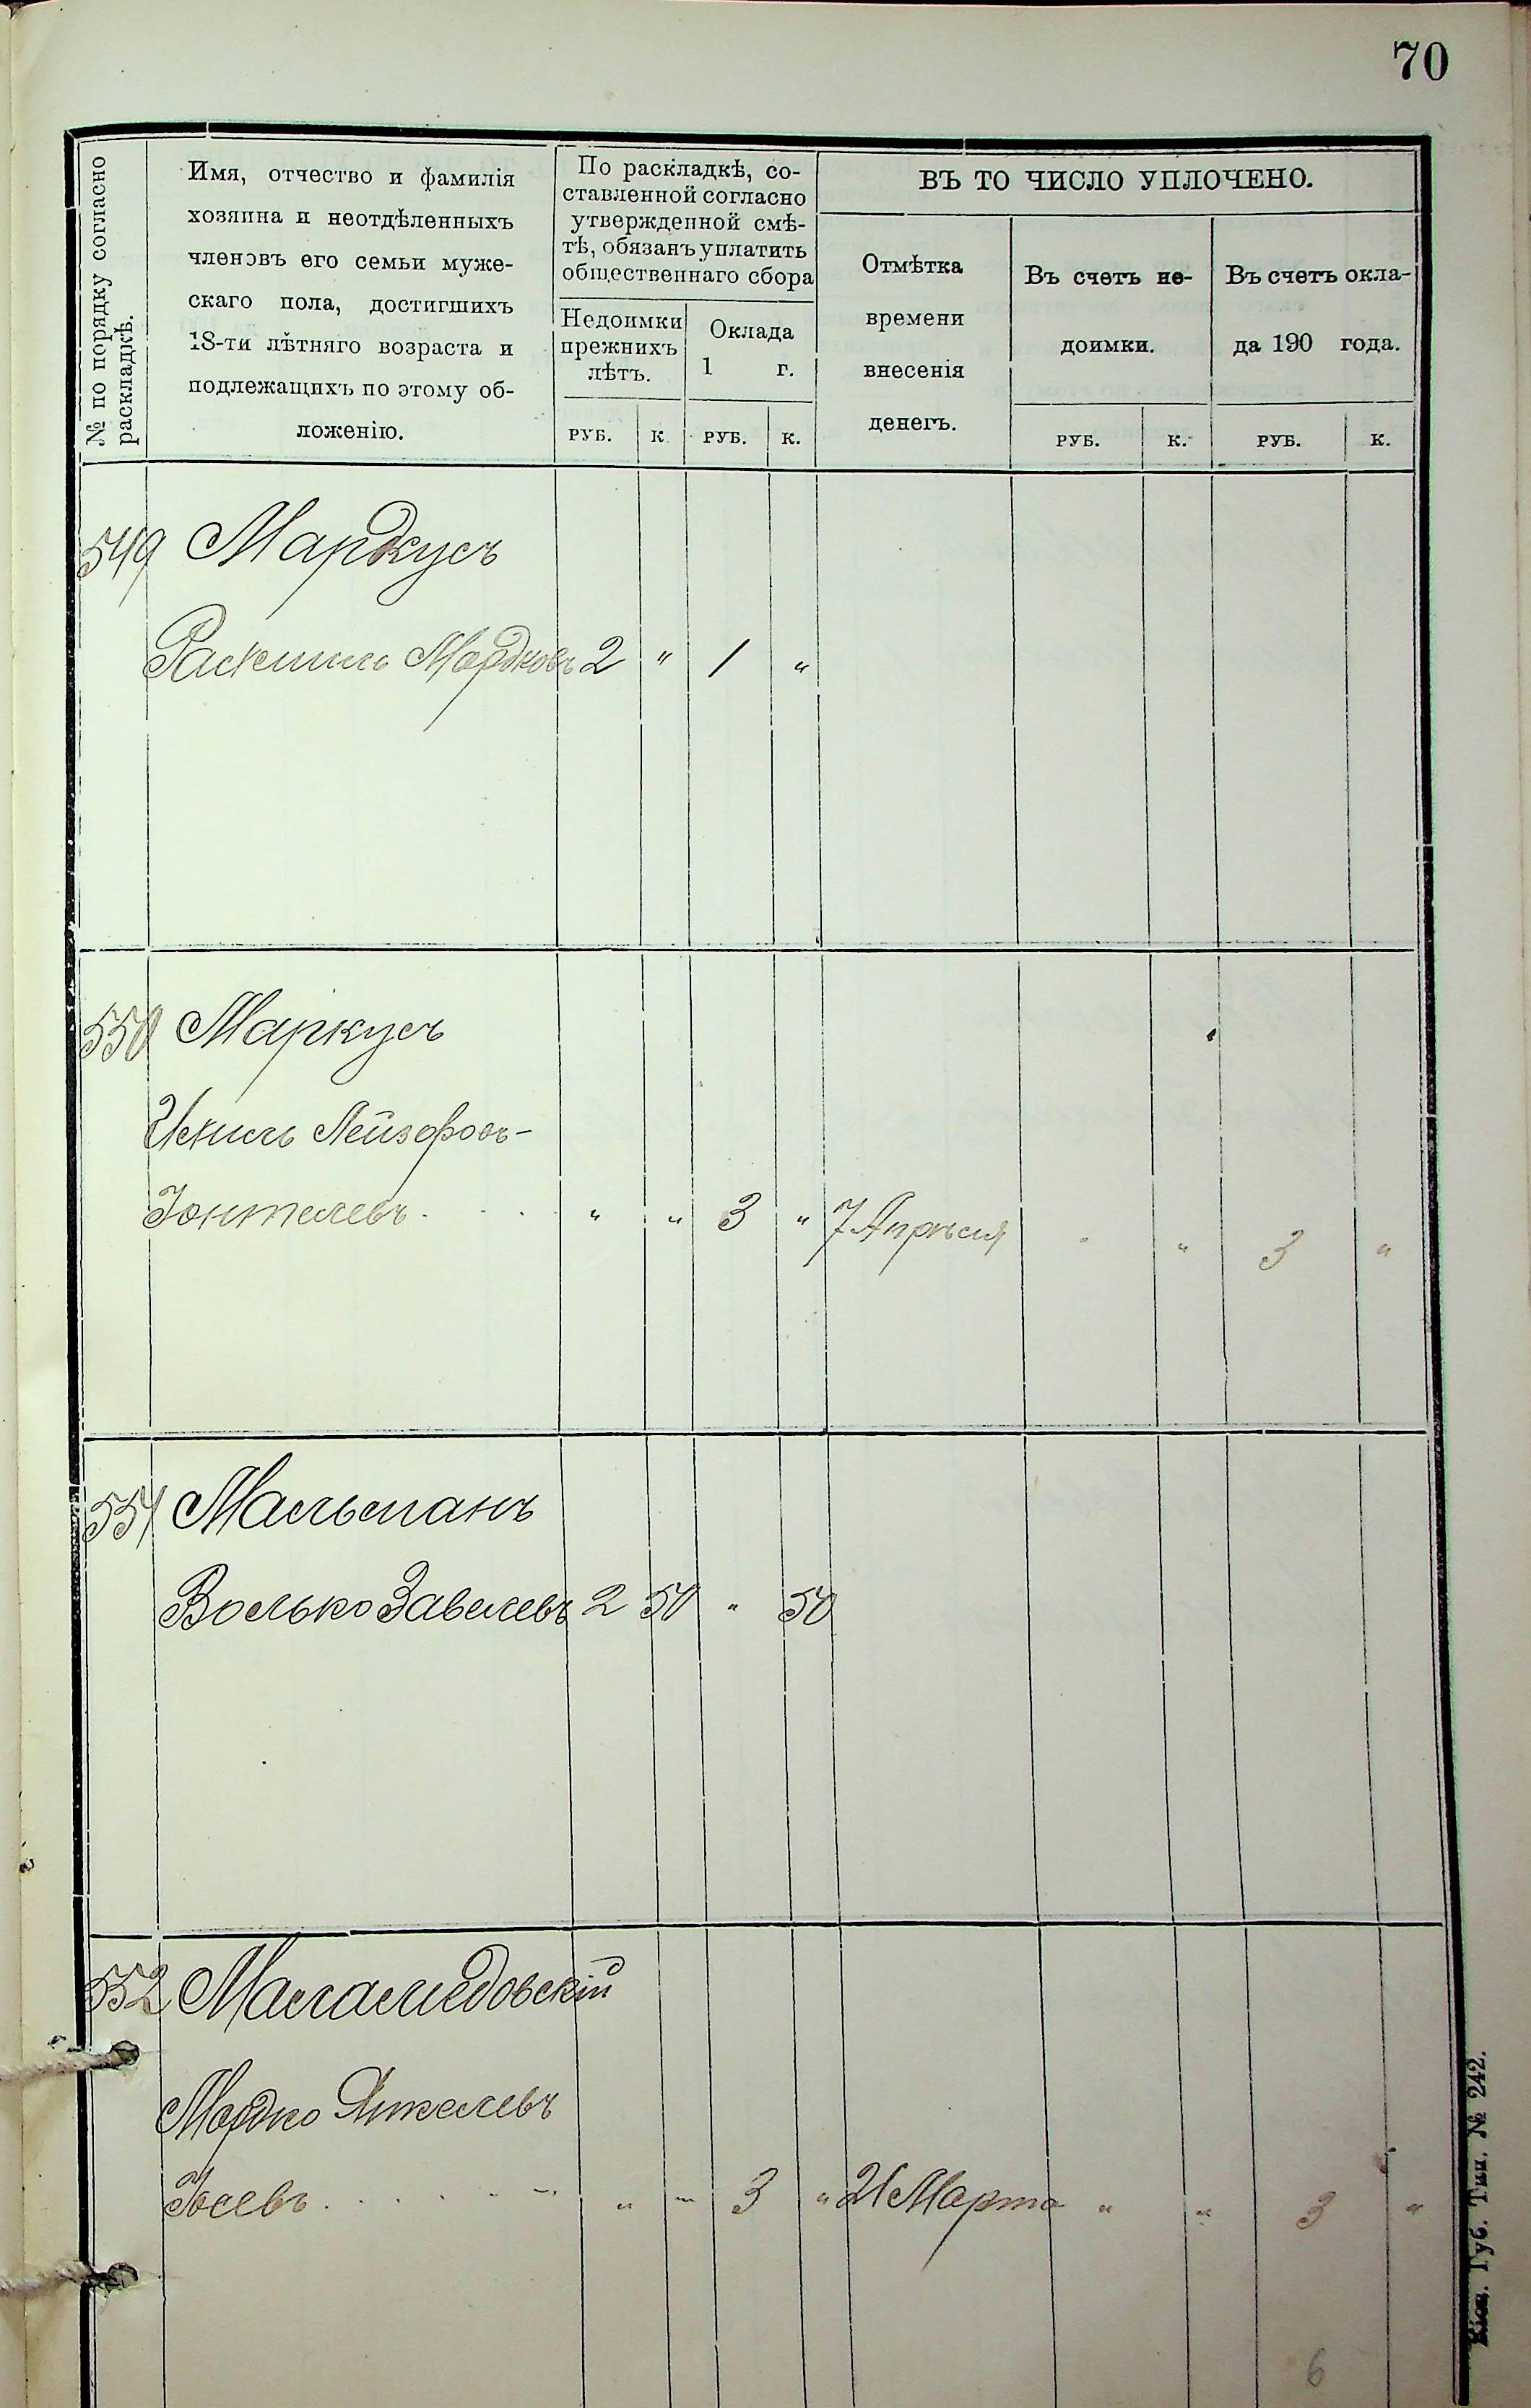 70
№ по порядку согласно
раскладкѣ.
Имя, отчество и фамилія
хозяина и неотдѣленныхъ
членовъ его семьи муже-
скаго пола, достигшихъ
18-ти лѣтняго возраста и
подлежащихъ по этому об-
ложенію.
По раскладкѣ, со-
ставленной согласно
утвержденной смѣ-
тѣ, обязанъ уплатить
общественнаго сбора
Недоимки
прежнихъ
лѣтъ.
Оклада
1 г.
ВЪ ТО ЧИСЛО УПЛОЧЕНО.
Отмѣтка
времени
внесенія
денегъ.
Въ счетъ не-
доимки.
Въ счетъ окла-
да 190 года.
РУБ. К. РУБ. К. РУБ. К. РУБ. К.
549 Мардкусъ
Мордковъ 2 " 1 "
550 Маркусъ
Ицикъ Лейзоровъ-
Іонтелевъ. " " 3 " 7 Апрѣля " " 3 "
551 Мальманъ
Волько Завелевъ 2 50 " 50
552 Маламедовскій
Мордко Янкелевъ
Іосевъ. " " 3 " 21 Марта " " 3 "
6
Кіев. Губ. Тип. № 242.